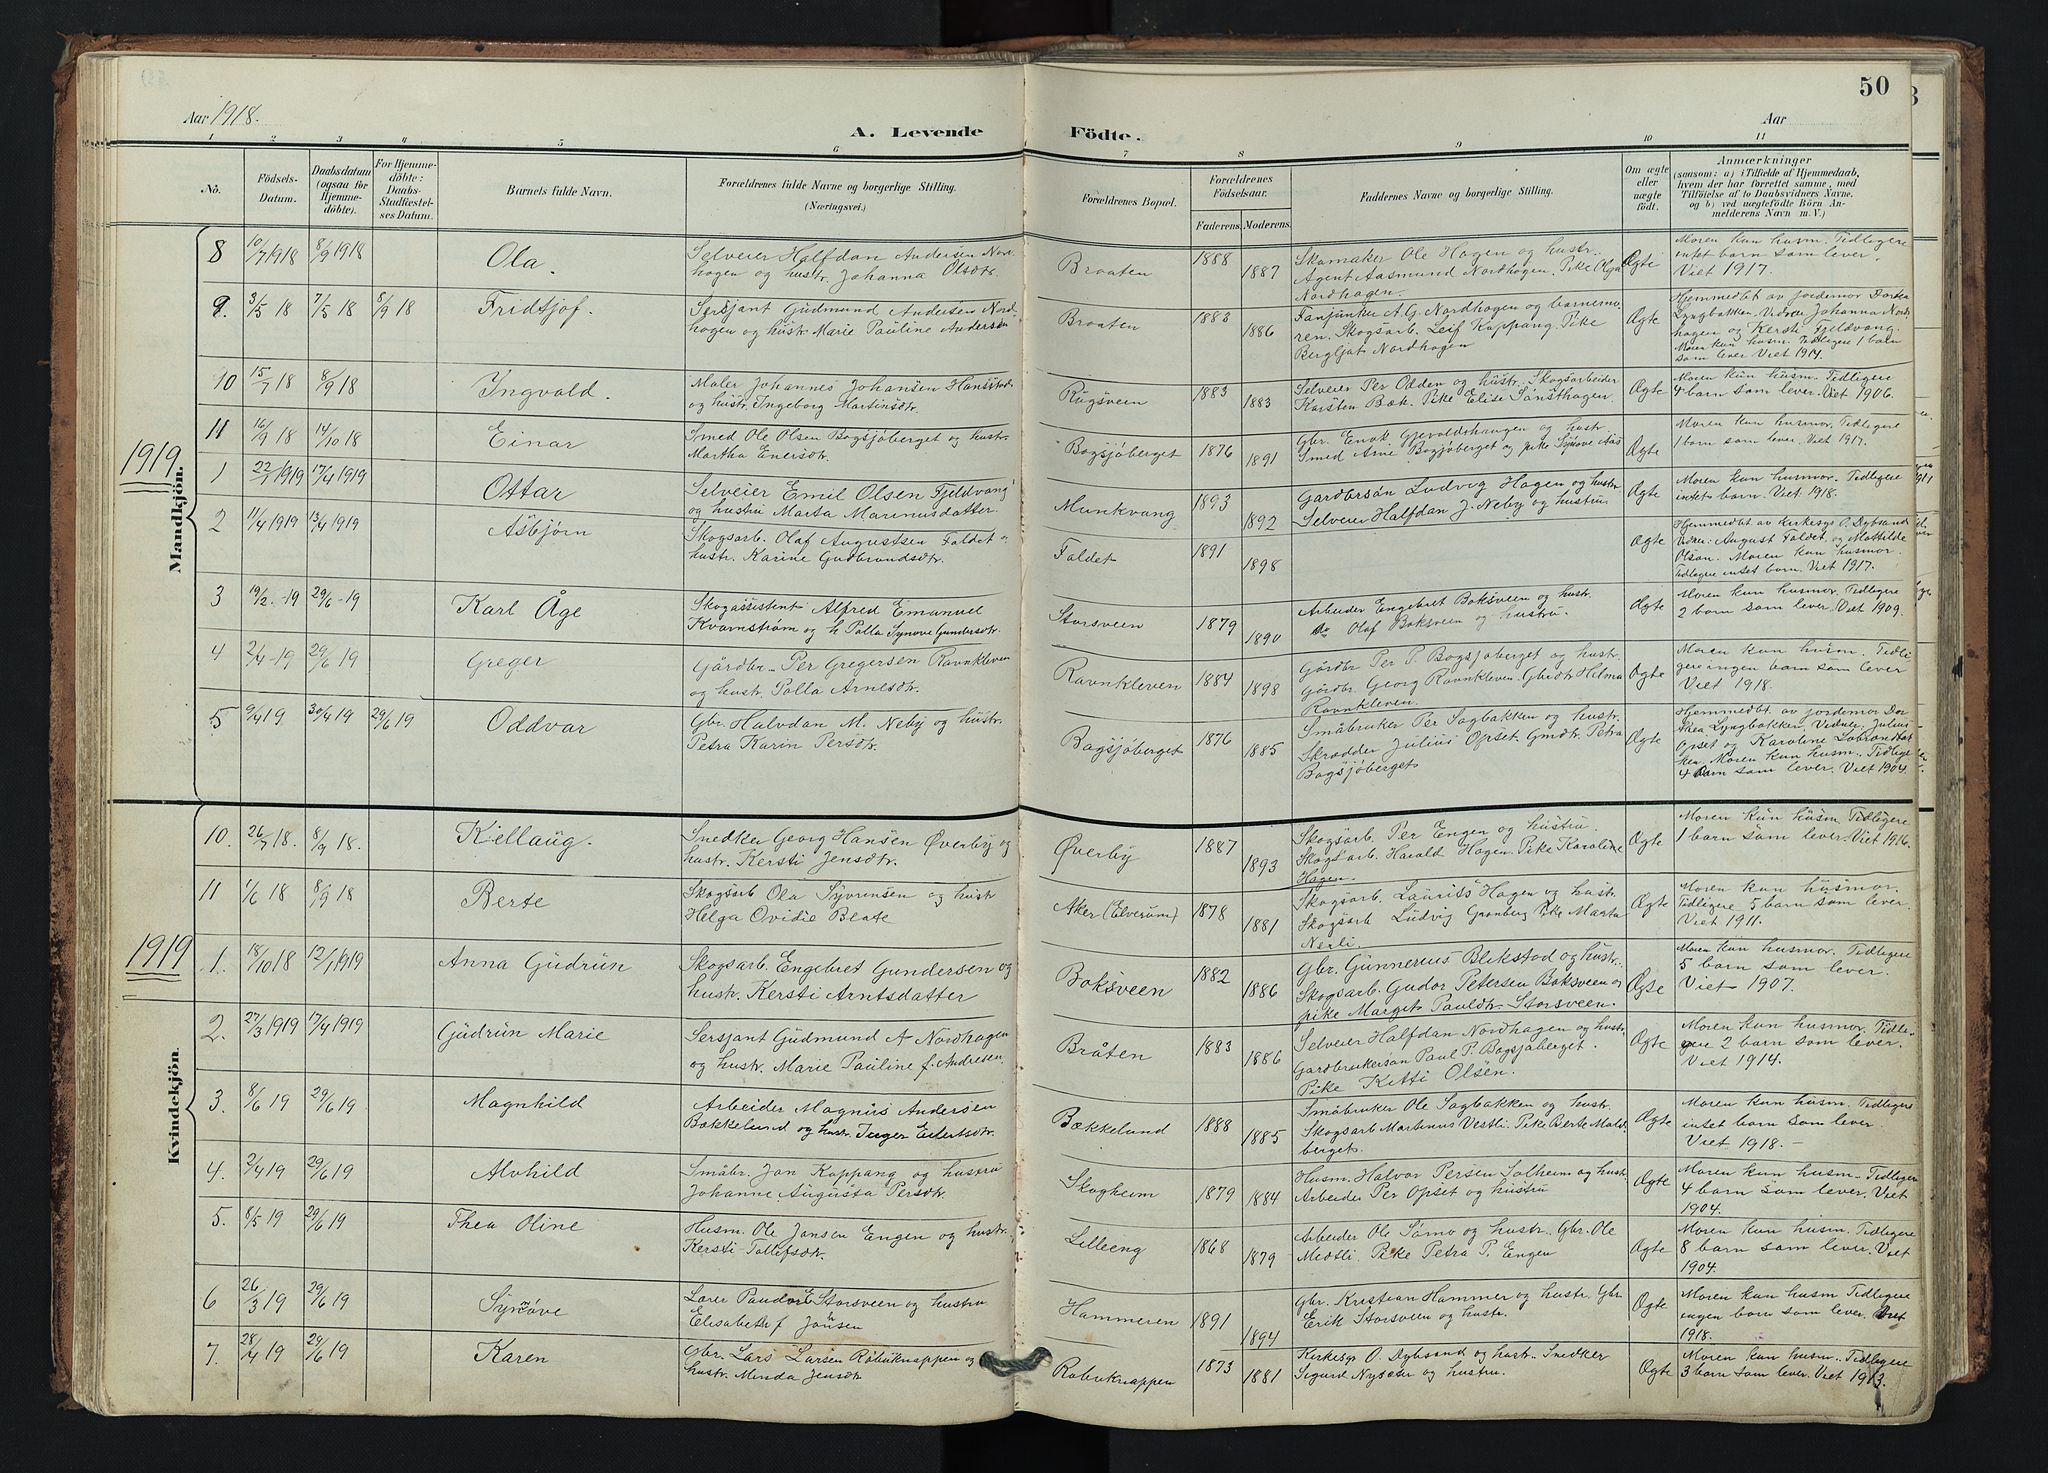 50
Aar 1918.
A. Levende Födte.
Aar
1 2 3 4 5 6 7 8 9 10 11
No.
Födsels-Datum.
Daabsdatum (ogsaa for Hjemme-döbte).
For Hjemme-döbte: Daabs-Stadfæstel-ses Datum.
Barnets fulde Navn.
Forældrenes fulde Navne og borgerlige Stilling.
(Næringsvei.)
Forældrenes Bopæl.
Forældrenes Födselsaar.
Faderens. Moderens.
Faddernes Navne og borgerlige Stilling.
Om ægte eller uægte født.
Anmærkninger
(saasom: a) i Tilfælde af Hjemmedaab,
hvem der har forrettet samme, med
Tilföielse af to Daabsvidners Navne.
og b) ved uægtefödte Börn An-
melderens Navn m. V.)
Mandkjön.
8 10/7 1918 8/9 1918 Ola.
Selveier Halfdan Andersen Nord-
hagen og hustr. Johanna Olsdtr.
Braaten 1888 1887
Skomaker Ole Hagen og hustr.
Agent Aasmund Nordhagen. Pike Olga
Nordhagen.
Ægte
Moren kun husm. Tidligere
intet barn som lever.
Viet 1917.
9. 3/5 18 7/5 18 8/9 18 Fridtjof.
Sersjant Gudmund Andersen Nord-
hagen og hustr. Marie Pauline Andersen
Braaten 1883 1886
Fanjunker A. G. Nordhagen og barnemo-
ren. Skogsarb. Leif Koppang. Pike
Bergljot Nordhagen
Ægte
Hjemmedbt av jordemor Dortea
Lyngbakken. Vidner Johanna Nord-
hagen og Kersti Fjeldvang.
Moren kun husm. Tidligere 1 barn
som lever Viet 1914.
10 15/7 18 8/9 18 Ingvald.
Maler Johannes Johansen Hansstad
og hustr. Ingeborg Martinsdtr.
Rugsveen 1883 1883
Selveier Per Odden og hustr. Skogsarbeider
Karsten Bæk. Pike Elise Sønsthagen.
Ægte
Moren kun husm. Tidligere
4 barn som lever. Viet 1906.
11 16/9 18 14/10 18 Einar
Smed Ole Olsen Bagsjøberget og hustr.
Martha Enersdtr.
Bagsjøberget 1876 1891
Gbr. Enok Gjevaldshaugen og hustr
Smed Arne Bagsjøberget og pike Synove Aas
Ægte
Moren kun husmor. Tidligere
1 barn som lever. Viet 1917.
1919
1 22/1 1919 17/4 1919 Ottar
Selveier Emil Olsen Fjeldvang
og hustru Marta Marinusdatter.
Munkvang 1893 1892
Gardbrsøn Ludvig Hagen og hustr
Selveier Halfdan J. Neby og hustru
Ægte
Moren kun husmor. Tidligere
intet barn. Viet 1918.
2 11/4 1919 13/4 1919 Asbjørn
Skogsarb. Olaf Augustsen Faldet o
hustr. Karine Gudbrandsdtr.
Faldet 1891 1898
Ægte
Hjemmedbt av Kirkesgr. O. Dybsand
Vidner: August Faldet og Mathilde
Olsen. Moren kun husmor.
Tidligere intet barn. Viet 1917.
3 19/2 -19 29/6 -19 Karl Åge
Skogassistent Alfred Emanuel
Kvarnstrøm og h. Polla Synove Gundersdtr.
Storsveen 1879 1890
Arbeider Engebret Boksveen og hustr.
Do Olaf Boksveen og hustru.
Ægte
Moren kun husmor. Tidligere
2 barn som lever. Viet 1909.
4 2/4 -19 29/6 19 Greger
Gårdbr. Per Gregersen Ravnkleven
og hustr. Polla Arnesdtr.
Ravnkleven 1884 1898
Gårdbr Per P. Bagsjøberget og hustr.
Gårdbr. Georg Ravnkleven. Gbrdtr Helma
Ravnkleven.
Ægte
Moren kun husm. Tidli-
gere ingen barn som lever
Viet 1918.
5 9/4 19 30/4 19 29/6 19 Oddvar
Gbr. Halvdan M. Neby og hustr.
Petra Karin Persdtr.
Bagsjøberget 1876 1885
Småbruker Per Sagbakken og hustr.
Skrædder Julius Opset. Gmdtr. Petra
Bagsjøberget
Ægte
Hjemmedbt av jordemor Dor-
thea Lyngbakken. Vidner: Julius
Opset og Karoline
Moren kun husm. Tidligere
4 barn som lever. Viet 1904.
Kvindekjön.
10. 26/7 18. 8/9 18. Kjellaug.
Snedker Georg Hansen Øverby og
hustr. Kersti Jensdtr.
Øverby 1887 1893
Skogsarb. Per Engen og hustru.
Skogsarb. Harald Hagen. Pike Karoline
Hagen.
Ægte
Moren kun husm. Tidligere
1 barn som lever. Viet 1916.
11 1/6 18 8/9 18 Berte
Skogsarb Ola Syversen og hustr
Helga Ovidie Beate
Aker (Elverum) 1878 1881
Skogsarb. Laurits Hagen og hustr.
Skogsarb Ludvig Grønberg Pike Marta
Nerli.
Ægte
Moren kun husmor.
Tidligere 5 barn som lever.
Viet 1911.
1919
1. 18/10 18 12/1 1919 Anna Gudrun
Skogsarb. Engebret Gundersen og
hustr. Kersti Arntsdatter
Boksveen 1882 1886
Gbr. Gunnerius Blekstad og hustr.
Skogsarb. Gudor Petersen Boksveen og
pike Margit Pauldtr. Storsveen.
Ægte
Moren kun husmor. Tidligere
5 barn som lever.
Viet 1907.
2. 27/3 1919 17/4 1919 Gudrun Marie
Sersjant Gudmund A Nordhagen
og hustr. Marie Pauline f. Andresen.
Bråten 1883 1886
Selveier Halfdan Nordhagen og hustr.
Gardbrukersøn Paul P. Bagsjøberget.
Pike Kitti Olsen.
Ægte
Moren kun husmor. Tidli-
gere 2 barn som lever.
Viet 1914.
3. 8/6 19 29/6 19 Magnhild
Arbeider Magnus Andersen
Bækkelund og hustr. Inger Eilertsdtr.
Bækkelund 1888 1885
Småbruker Ole Sagbakken og hustr.
Skogsarb Martinus Vestli. Pike Berte Mold-
berget.
Ægte
Moren kun husm. Tidligere
intet barn som lever.
Viet 1918. -
4. 2/4 19 29/6 19 Alvhild
Småbr. Jon Koppang og hustru
Johanne Augusta Persdtr.
Skogheim 1879 1884
Husm. Halvor Persen Solheim og hustr.
Arbeider Per Opset og hustru
Ægte
Moren kun husm. Tidligere
4 barn som lever. Viet
1904.
5. 8/5 19 29/6 19 Thea Oline
Husm. Ole Jonsen Engen og hustr.
Kersti Tollefsdtr.
Lilleeng 1868 1879
Arbeider Ole Sørmo og hustr. Gbr. Ole
Medtli. Pike Petra P. Engen
Ægte
Moren kun husm. Tidligere
8 barn som lever. Viet
1904.
6 26/3 19 29/6 19 Synnøve
Lærer Storsveen og hustru
Elisabeth f. Jonsen
Hammeren 1891 1894
Gbr. Kristian Hammer og hustr. Gbr
Erik Storsveen og hustr.
Ægte
Moren kun husm Tidligere
ingen barn som lever. Viet
1918.
7. 28/4 19 29/6 19 Karen
Gbr. Lars Larsen Røbuknappen og
hustr. Minda Jensdtr
Røbuknappen 1873 1881
Kirkesgr O. Dybsand og hustr. Snedker
Sigurd Nysæter og hustru.
Ægte
Moren kun husm. Tidligere
3 barn som lever. Viet 1913.